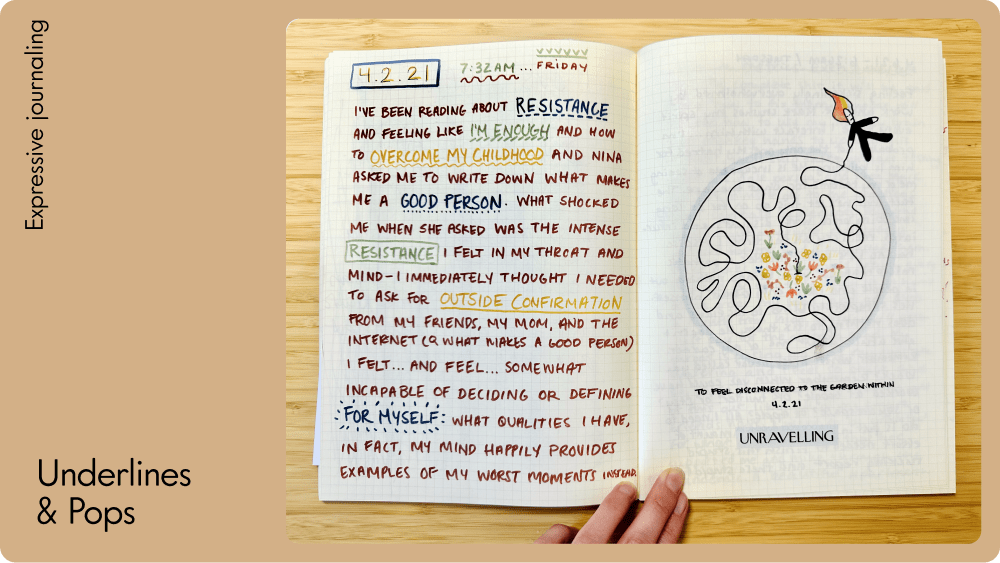 Expressive journaling
Underlines
& Pops
4.2.21
7:32AM ... FRIDAY
I'VE BEEN READING ABOUT RESISTANCE
AND FEELING LIKE I'M ENOUGH AND HOW
TO OVERCOME MY CHILDHOOD AND NINA
ASKED ME TO WRITE DOWN WHAT MAKES
ME A GOOD PERSON. WHAT SHOCKED
ME WHEN SHE ASKED WAS THE INTENSE
RESISTANCE I FELT IN MY THROAT AND
MIND-I IMMEDIATELY THOUGHT I NEEDED
TO ASK FOR OUTSIDE CONFIRMATION
FROM MY FRIENDS, MY MOM, AND THE
INTERNET (Q WHAT MAKES A GOOD PERSON)
I FELT... AND FEEL... SOMEWHAT
INCAPABLE OF DECIDING OR DEFINING
FOR MYSELF: WHAT QUALITIES I HAVE,
IN FACT, MY MIND HAPPILY PROVIDES
EXAMPLES OF MY WORST MOMENTS INSTEAD.
TO FEEL DISCONNECTED TO THE GARDEN WITHIN
4.2.21
UNRAVELLING